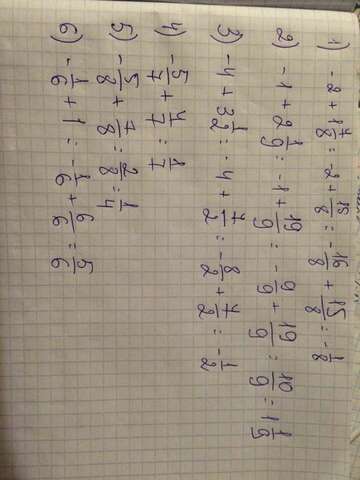 1) -2+1 7/8 = -2+ 15/8 = - 16/8 + 15/8 = - 1/8
2) -1 + 2 1/9 = -1+ 19/9 = - 9/9 + 19/9 = 10/9 = 1 1/9
3) -4 + 3 1/2 = -4 + 7/2 = - 8/2 + 7/2 = - 1/2
4) - 5/7 + 4/7 = 1/7
5) - 5/8 + 7/8 = 2/8 = 1/4
6) - 1/6 + 1 = - 1/6 + 6/6 = 5/6